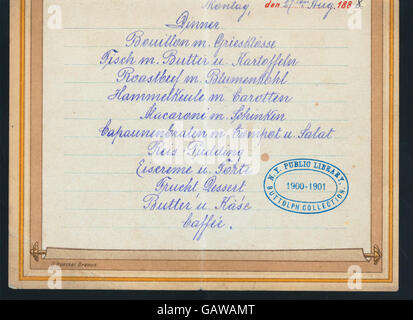 Montag, den 27ten Aug. 188
Dinner
Bouillon m. Griesklösse
Fisch m. Butter u. Kartoffeln
Roastbeef m. Blumenkohl
Hammelkeule m. Carotten
Macaroni m. Schinken
Capaunenbraten m. Compot u. Salat
Reis Pudding
Eiscreme u. Torte
Frucht, Dessert
Butter u. Käse
Caffée.
N.Y. PUBLIC LIBRARY
1900-1901
BUTTOLPH COLLECTION.
Bremen.
alamy stock photo
Image ID: GAWAMT
www.alamy.com